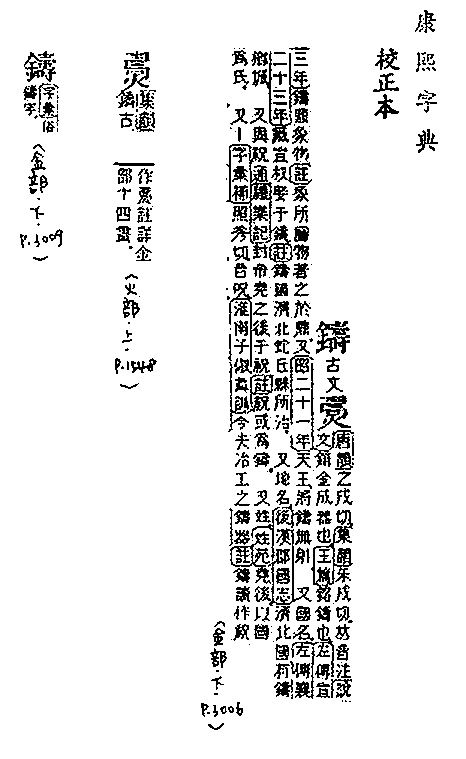 康熙字典
校正本
鑄 古文 𤒛 唐韻之戍切集韻朱戍切𠀤音注說
文銷金成器也玉篇鎔鑄也左傳宣
三年鑄鼎象物註象所圖物著之於鼎又昭二十一年天王將鑄無射 又國名左傳襄
二十三年臧宣叔娶于鑄註鑄國濟北蛇丘縣所治 又地名後漢郡國志濟北國有鑄
鄉城 又與祝通禮樂記封帝堯之後于祝註祝或爲鑄 又姓姓苑堯後以國
爲氏 又字彙補照秀切音呪淮南子俶眞訓今夫冶工之鑄器註鑄讀作祝
(金部.下.P.3006)
𤒛 集韻
鑄古
作𤒛註詳金
部十四畫。
(火部.上.P.1548)
鑄 字彙俗
鑄字。
(金部.下.P.3009)